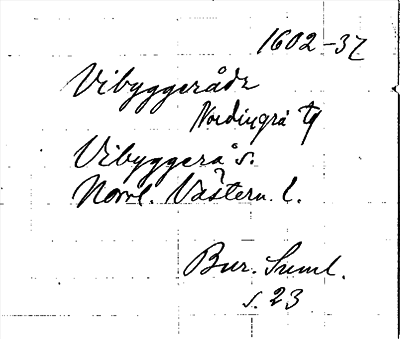 1602-37
Vibyggerådr
Nordingrå tg
Vibyggerå s.
Norrl. Västern. l.
Bur. Suml.
s. 23